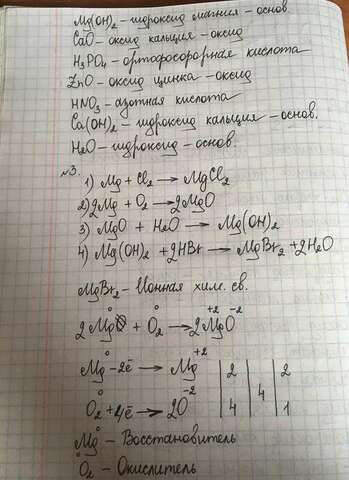 Mg(OH)₂ – гидроксид магния – основ.
CaO – оксид кальция – оксид
H₃PO₄ – ортофосфорная кислота
ZnO – оксид цинка – оксид
HNO₃ – азотная кислота
Ca(OH)₂ – гидроксид кальция – основ.
H₂O – гидроксид – основ.
№3.
1) Mg + Cl₂ → MgCl₂
2) 2Mg + O₂ → 2MgO
3) MgO + H₂O → Mg(OH)₂
4) Mg(OH)₂ + 2HBr → MgBr₂ + 2H₂O
MgBr₂ – Ионная хим. св.
2Mg⁰ + O₂⁰ → 2Mg⁺²O⁻²
Mg⁰ – 2ē → Mg⁺² | 2 | | 2
O₂⁰ + 4ē → 2O⁻² | 4 | 4 | 1
Mg⁰ – Восстановитель
O₂⁰ – Окислитель